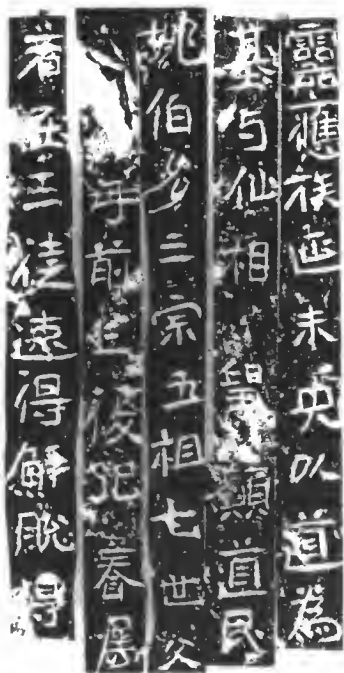 靈應族延未央以道為
基与仙相望願道民
姚伯多三宗五祖七世父
母前亡後死眷属
若在三徒速得解脱得